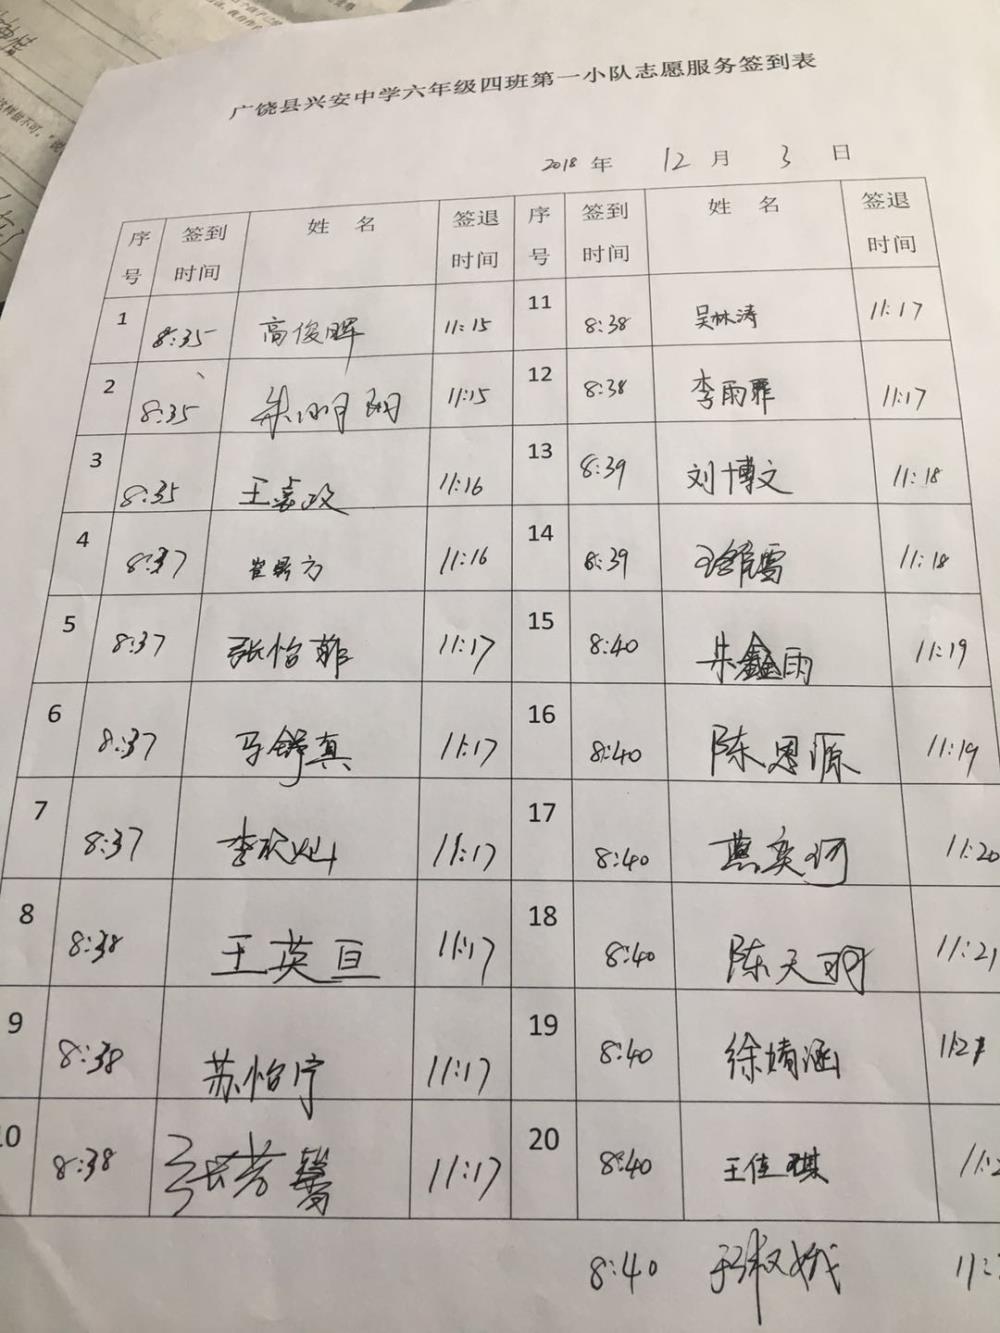 广饶县兴安中学六年级四班第一小队志愿服务签到表
2018 年 12 月 3 日
序号 签到时间 姓 名 签退时间 序号 签到时间 姓 名 签退时间
1 8:35 高俊晖 11:15 11 8:38 吴林涛 11:17
2 8:35 朱明明 11:15 12 8:38 李雨菲 11:17
3 8:35 王嘉政 11:16 13 8:39 刘博文 11:18
4 8:37 11:16 14 8:39 11:18
5 8:37 张怡菲 11:17 15 8:40 朱鑫雨 11:19
6 8:37 马舒真 11:17 16 8:40 陈恩源 11:19
7 8:37 李 11:17 17 8:40 燕奕珂 11:20
8 8:38 王英亘 11:17 18 8:40 陈天羽 11:21
9 8:38 苏怡宁 11:17 19 8:40 徐婧涵
8:38 张芳馨 11:17 20 8:40 王佳琪
8:40